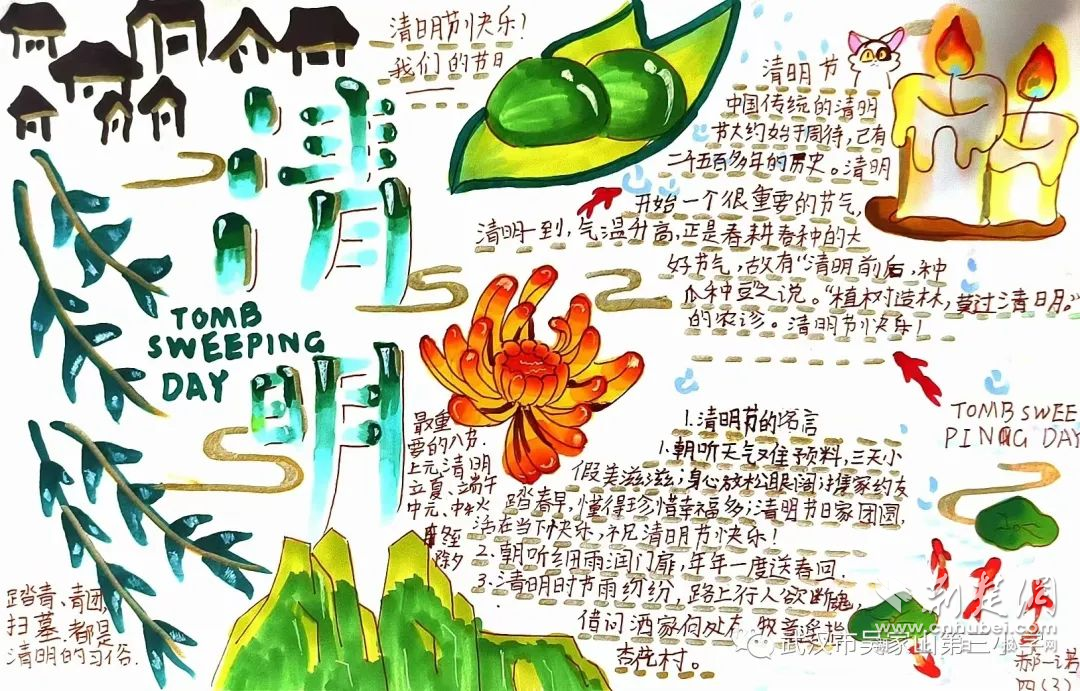 清明节快乐!
我们的节日
清明
TOMB
SWEEPING
DAY
清明节
中国传统的清明
节大约始于周待,已有
二千五百多年的历史。清明
开始一个很重要的节气,
清明一到,气温升高,正是春耕春种的大
好节气,故有“清明前后,种
瓜种豆”之说。“植树造林,莫过清明。”
的农谚。清明节快乐!
TOMB SWEE
PING DAY
最重
要的八节.
上元、清明
立夏、端午
中元、中秋
冬至
除夕
1.清明节的
1.朝听天气又佳预料,三天小
假美滋滋;身心放松眼阔;携家约友
踏春早,懂得珍惜幸福多;清明节日家团圆,
活在当下快乐,祝清明节快乐!
2.朝听细雨润门扉,年年一度送春回
3.清明时节雨纷纷,路上行人欲断魂,
借问酒家何处有,牧童遥指
杏花村。
踏青、青团,
扫墓.都是
清明的习俗.
荆楚网
www.cnhubei.com
武汉市吴家山第二小学
郝一诺
四(3)